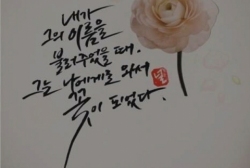 내가
그의 이름을
불러주었을 때.
그는 나에게로 와서
꽃이 되었다.